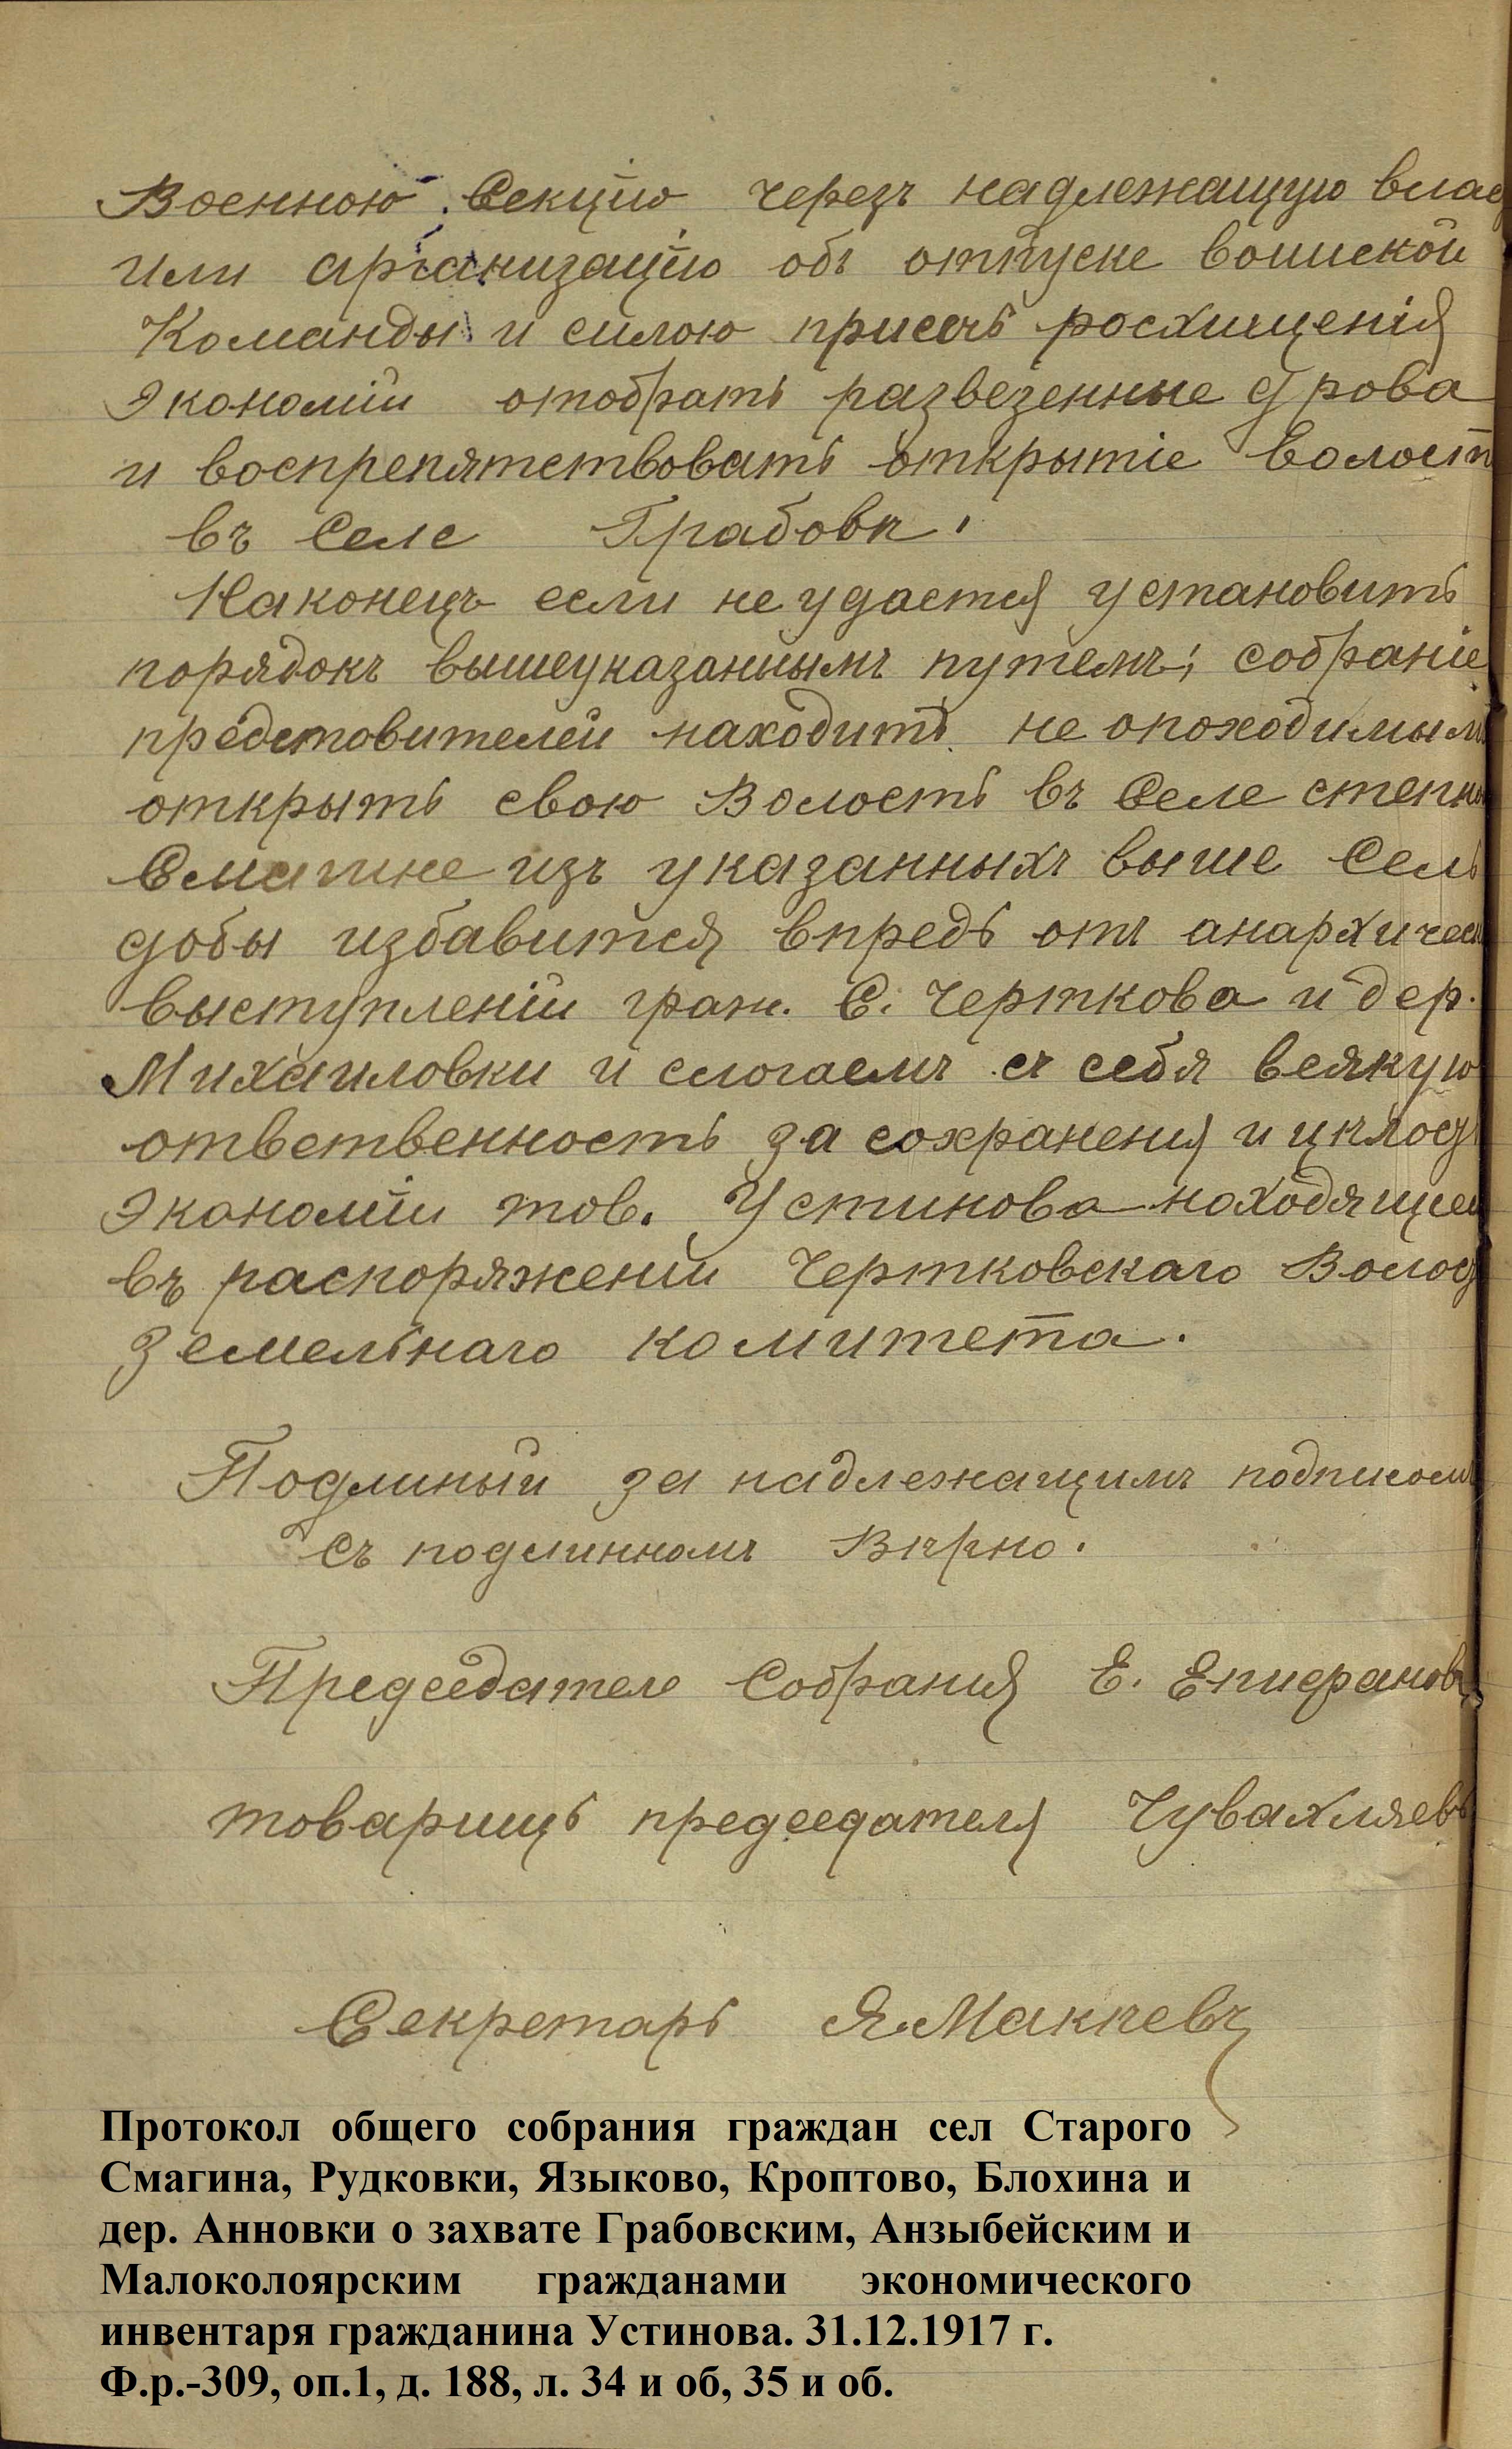 Военною Секцiю черезъ надлежащую влад
или арганизацiю объ отпуске воинской
Команды и силою присечь росхищенiя
Экономiи отобрать развезенные дрова
и воспрепятствовать открытiе Волост
въ Селе Грабовк.
Наконецъ если не удастся установить
порядокъ вышеуказаннымъ путемъ; собранiе
предстовителей находитъ не опоходимымъ
открыть свою Волость въ Селе степно
Смагине изъ указанныхъ выше Селъ
добы избавится впредь отъ анархическ
выступленiи граж. С. Черткова и дер.
Михаиловки и слогаемъ съ себя всякую
отвественность за сохранения и цѣлод
Экономiи тов. Устинова находящеи
въ распоряженiи Чертковскаго Волод
Земельнаго комитета.
Подлиный за надлежащимъ подписомъ
Съ подлиннамъ Вѣрно.
Председателе Собрания Е. Епифановъ
товарищь председателя Чувахляевъ
Секретарь Я. Макѣевъ
Протокол общего собрания граждан сел Старого
Смагина, Рудковки, Языково, Кроптово, Блохина и
дер. Анновки о захвате Грабовским, Анзыбейским и
Малоколоярским гражданами экономического
инвентаря гражданина Устинова. 31.12.1917 г.
Ф.р.-309, оп.1, д. 188, л. 34 и об, 35 и об.